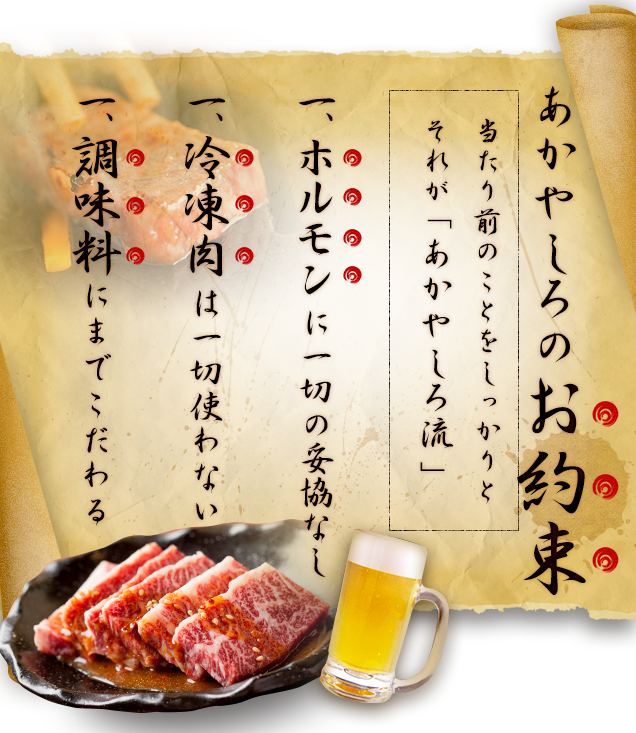 あかやしろのお約束
当たり前のことをしっかりと
それが「あかやしろ流」
一、ホルモンに一切の妥協なし
一、冷凍肉は一切使わない
一、調味料にまでこだわる